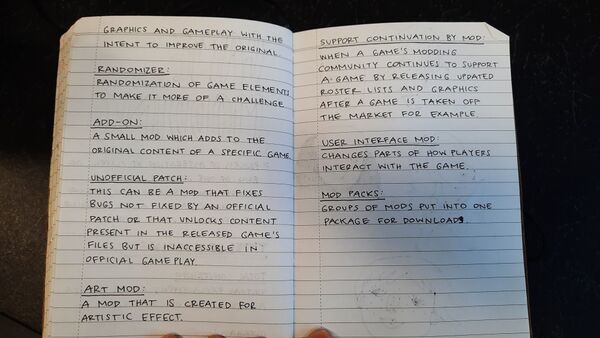 GRAPHICS AND GAMEPLAY WITH THE
INTENT TO IMPROVE THE ORIGINAL.
RANDOMIZER:
RANDOMIZATION OF GAME ELEMENTS
TO MAKE IT MORE OF A CHALLENGE.
ADD-ON:
A SMALL MOD WHICH ADDS TO THE
ORIGINAL CONTENT OF A SPECIFIC GAME.
UNOFFICIAL PATCH:
THIS CAN BE A MOD THAT FIXES
BUGS NOT FIXED BY AN OFFICIAL
PATCH OR THAT UNLOCKS CONTENT
PRESENT IN THE RELEASED GAME'S
FILES BUT IS INACCESSIBLE IN
OFFICIAL GAMEPLAY.
ART MOD:
A MOD THAT IS CREATED FOR
ARTISTIC EFFECT.
SUPPORT CONTINUATION BY MOD:
WHEN A GAME'S MODDING
COMMUNITY CONTINUES TO SUPPORT
A GAME BY RELEASING UPDATED
ROSTER LISTS AND GRAPHICS
AFTER A GAME IS TAKEN OFF
THE MARKET FOR EXAMPLE.
USER INTERFACE MOD:
CHANGES PARTS OF HOW PLAYERS
INTERACT WITH THE GAME.
MOD PACKS:
GROUPS OF MODS PUT INTO ONE
PACKAGE FOR DOWNLOADS.